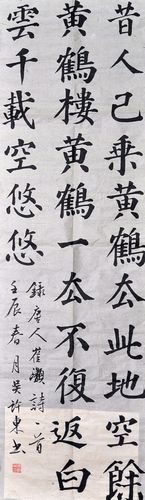 昔人已乘黃鶴厺此地空餘
黃鶴樓黃鶴一厺不復返白
雲千載空悠悠
錄唐人崔灝詩一首
壬辰春月吴許東书